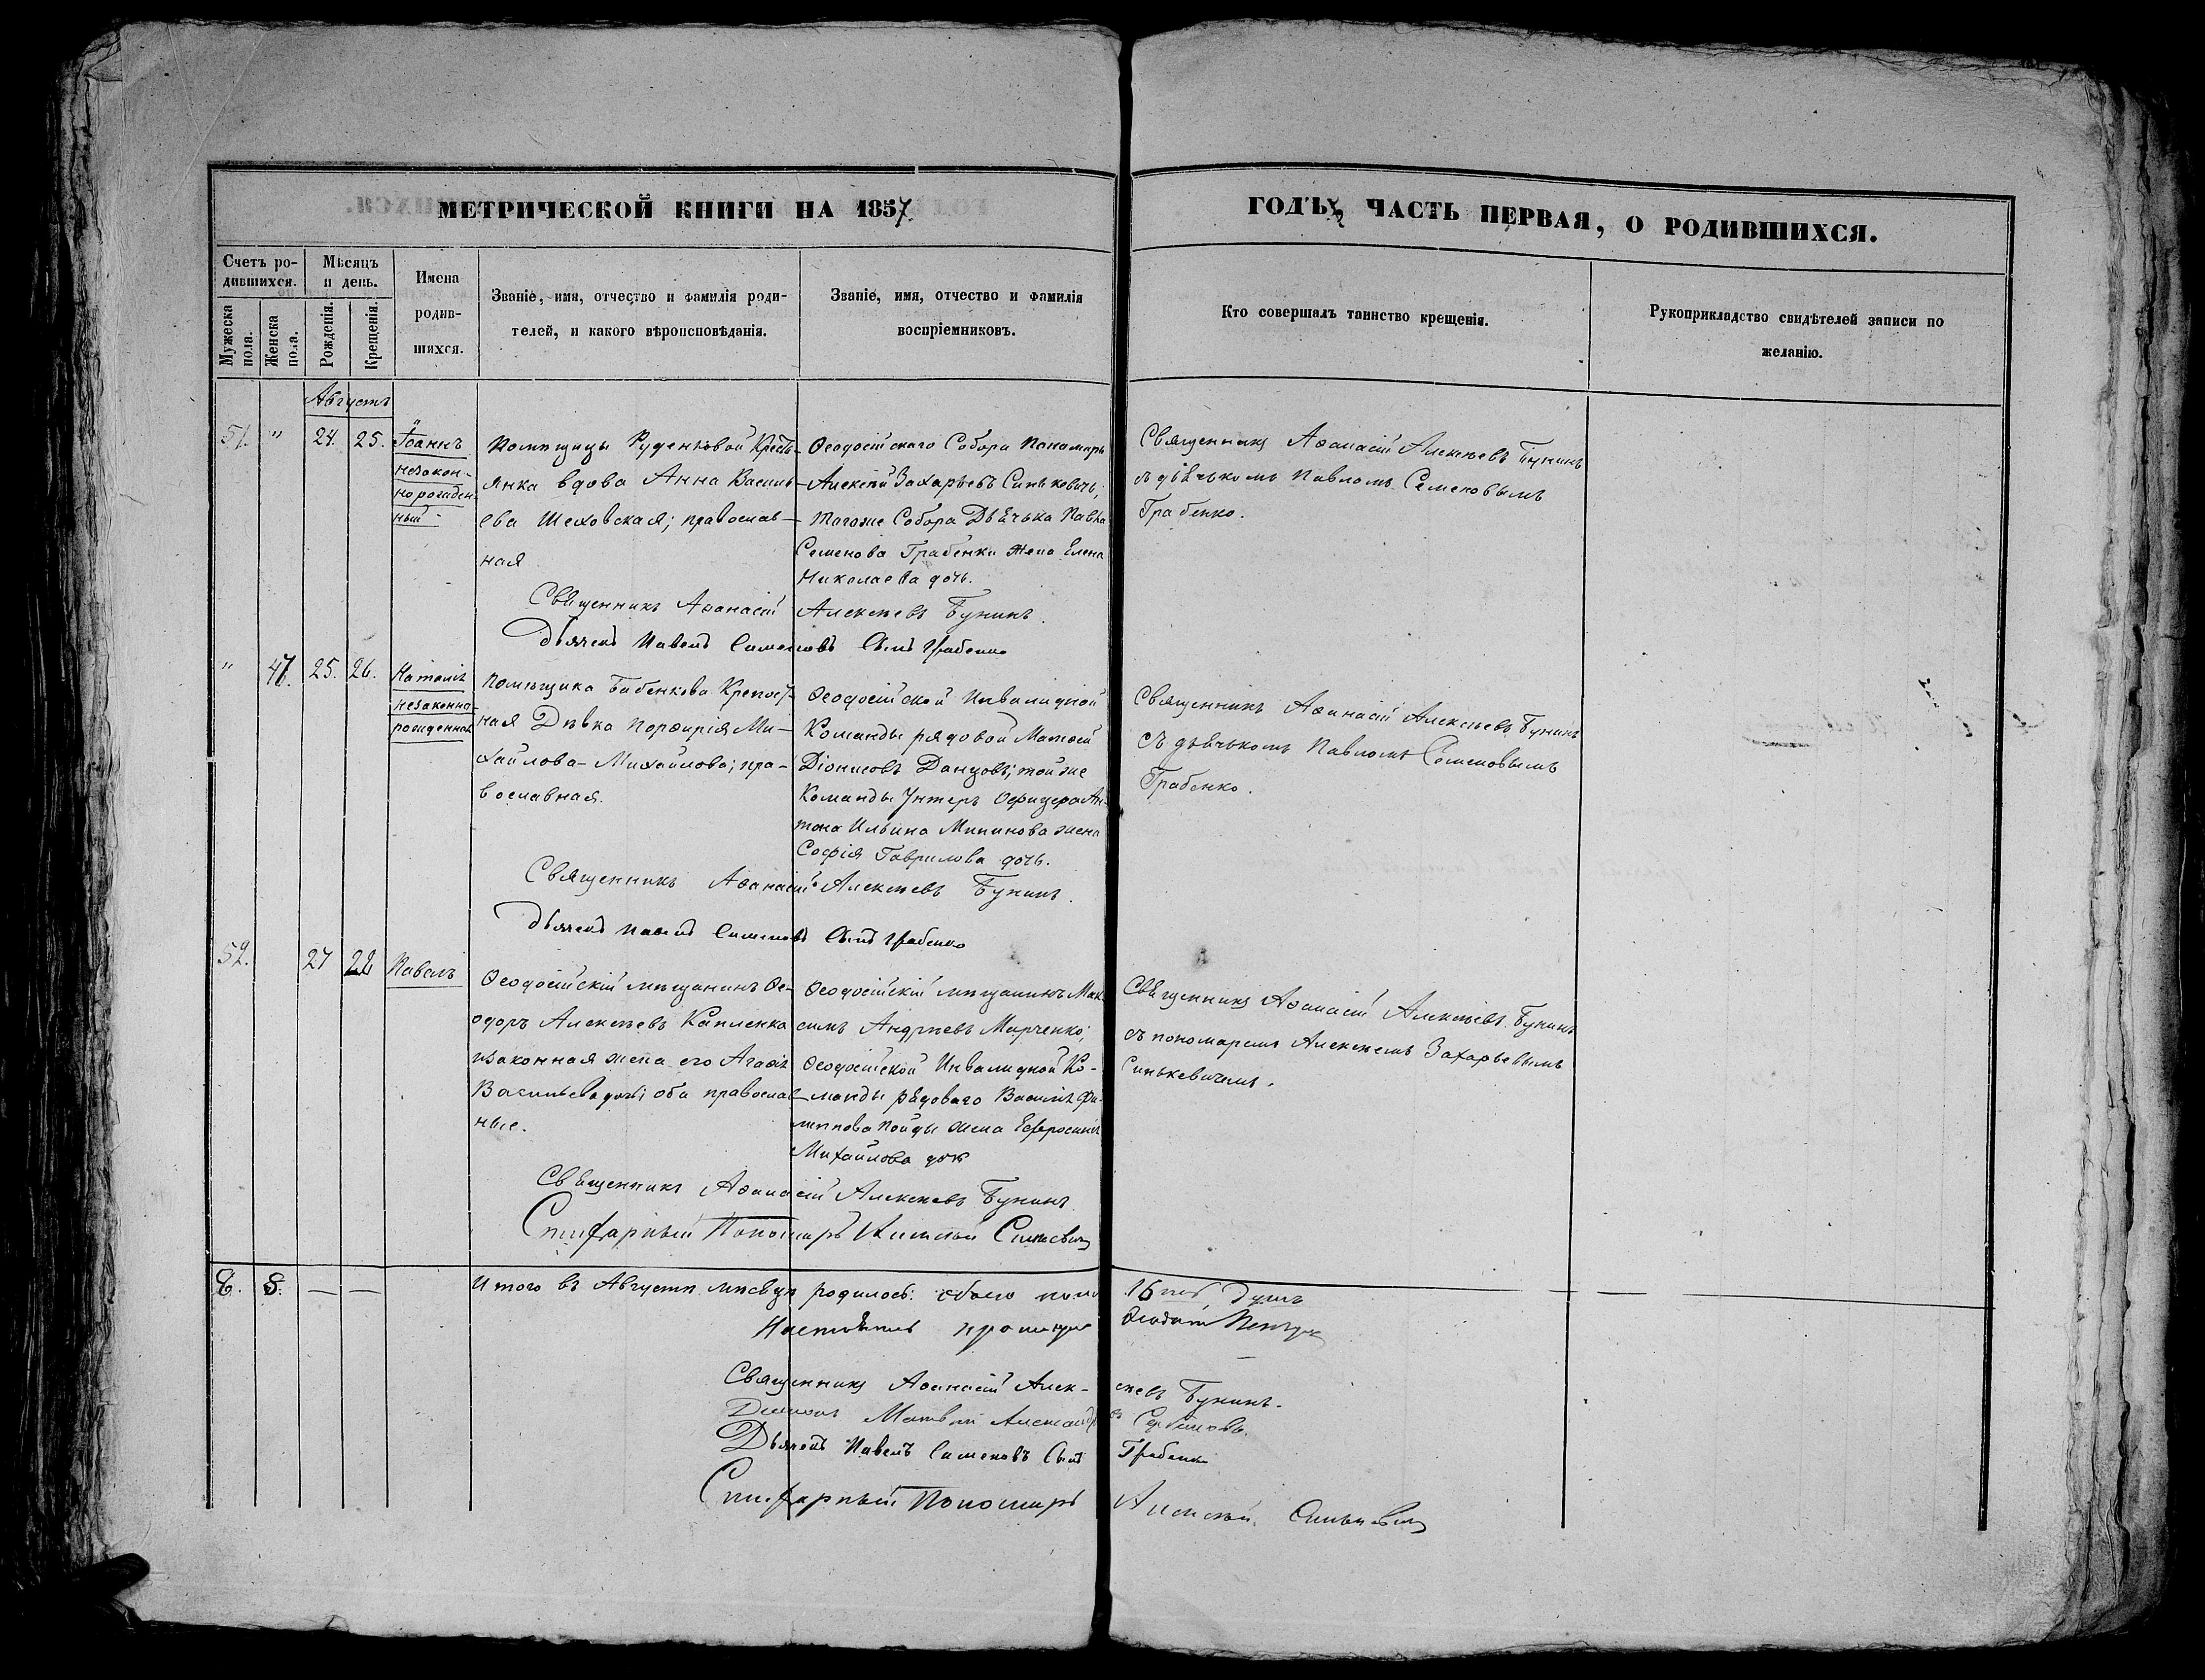 МЕТРИЧЕСКОЙ КНИГИ НА 1857.
ГОДЪ, ЧАСТЬ ПЕРВАЯ, О РОДИВШИХСЯ.
Счетъ ро-
дившихся.
Мѣсяцъ
и день.
Мужеска
пола.
Женска
пола.
Рожденія.
Крещенія.
Имена
родив-
шихся.
Званіе, имя, отчество и фамилія роди-
телей, и какого вѣроисповѣданія.
Званіе, имя, отчество и фамилія
воспріемниковъ.
Кто совершалъ таинство крещенія.
Рукоприкладство свидѣтелей записи по
желанію.
Августъ
51. " 24. 25.
Іоаннъ
незакон-
норожден
ный
Помѣщицы Руденковой Кресть-
янка вдова Анна Василь-
ева Шеховская; православ-
ная
Ѳеодосійскаго Собора Пономарь
Алексѣй Захарьевъ Синькевичъ;
тогоже Собора Дьячька Павла
Семенова Грабенки жена Елена
Николаева дочь.
Священникъ Аѳанасій Алексѣевъ Бунинъ
съ дьячькомъ Павломъ Семеновымъ
Грабенко.
Священникъ Аѳанасій Алексѣевъ Бунинъ.
Дьячекъ Павелъ Семеновъ Сынъ Грабенко
" 47. 25. 26.
Наталія
незаконно-
рожденная
Помѣщика Бабенкова Крепост-
ная Дѣвка Порфирія Ми-
хайлова Михайлова; пра-
вославная.
Ѳеодосійской Инвалидной
Команды рядовой Матѳей
Діонисовъ Данцовъ; той же
Команды Унтеръ Офицера Ан-
тона Ильина Мининова жена
Софія Гаврилова дочь.
Священникъ Аѳанасій Алексѣевъ Бунинъ
съ дьячькомъ Павломъ Семеновымъ
Грабенко.
Священникъ Аѳанасій Алексѣевъ Бунинъ.
Дьячекъ Павелъ Семеновъ Сынъ Грабенко
52. 27 28
Павелъ
Ѳеодосійскій мѣщанинъ Ѳе-
одоръ Алексѣевъ Капленка
изаконная жена его Агафія
Васильева дочь; оба православ-
ные.
Ѳеодосійскій мѣщанинъ Мак-
симъ Андрѣевъ Марченко;
Ѳеодосійской Инвалидной Ко-
манды рядоваго Василія Фи-
липпова Пойды жена Ефросинія
Михайлова дочь
Священникъ Аѳанасій Алексѣевъ Бунинъ
съ пономаремъ Алексѣемъ Захарьевымъ
Синькевичемъ.
Священникъ Аѳанасій Алексѣевъ Бунинъ
Стихарный Пономарь Алексѣй Синькевичъ
8. 8. — —
Итого въ Августѣ мѣсяцѣ родилось: обоего пола 16 Душъ
Священникъ Аѳанасій Алек-
сѣевъ Бунинъ.
Дьячекъ Павелъ Семеновъ Сынъ Грабенко
Стихарный Пономарь Алексѣй Синькевичъ